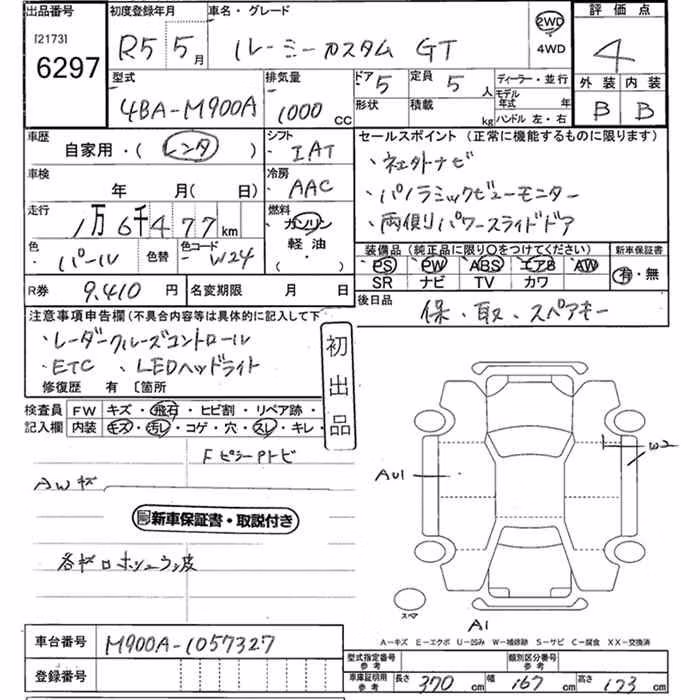 出品番号 初度登録年月 車名・グレード 評価点
[2173] 6297 R5 5月 ルーミーカスタム GT 2WD 4WD 4
型式 排気量 ドア 5 定員 5人 ディーラー・並行 外装 内装
4BA-M900A 1000cc 形状 積載 kg モデル年式 年 ハンドル 左・右 B B
車歴 自家用・(レンタ) シフト IAT セールスポイント (正常に機能するものに限ります)
車検 年 月(日) 冷房 AAC
・パノラミックビューモニター
走行 1万6千477km 燃料 ガソリン 軽油 ・( )
・両側リパワースライドドア
色 パール 色替 色コード W24
装備品(純正品に限り○をつけてください) 新車保証書
PS PW ABS エアB AW 有・無
SR ナビ TV カワ
R券 9,410円 名変期限 月 日 後日品 保、取、スペアキー
注意事項申告欄(不具合内容等は具体的に記入して下
・レーダークルーズコントロール
・ETC 、LEDヘッドライト
修復歴 有 〔箇所
初出品
検査員 FW キズ・飛石・ヒビ割・リペア跡・
記入欄 内装 キズ・汚レ・コゲ・穴・スレ・キレ・
Fピラー
AWキズ
新車保証書・取説付き
AU1
W2
スマ
A1
A-キズ E-エクボ U-凹み W-補修跡 S-サビ C-腐食 XX-交換済
車台番号 M900A-1057327
登録番号
型式指定番号 参考 類別区分番号 参考
車庫証明用 参考 長さ 370cm 幅 167cm 高さ 173cm